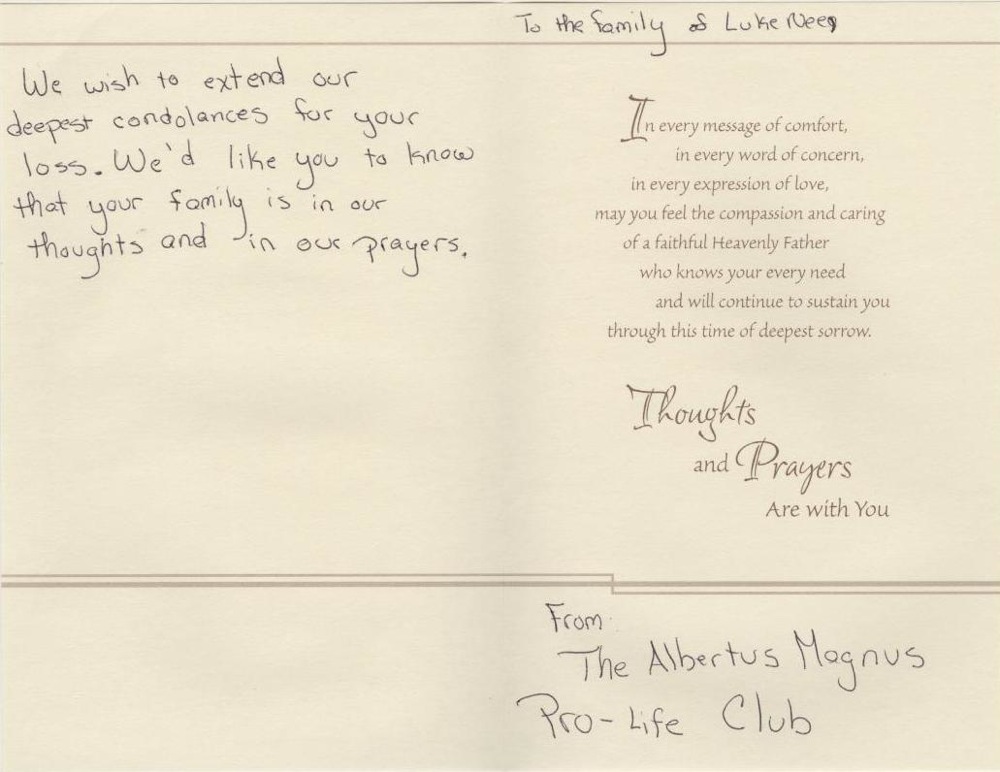 We wish to extend our
deepest condolances for your
loss. We'd like you to know
that your family is in our
thoughts and in our prayers.
To the family of Luke
In every message of comfort,
in every word of concern,
in every expression of love,
may you feel the compassion and caring
of a faithful Heavenly Father
who knows your every need
and will continue to sustain you
through this time of deepest sorrow.
Thoughts
and Prayers
Are with You
From
The Albertus Magnus
Pro-Life Club